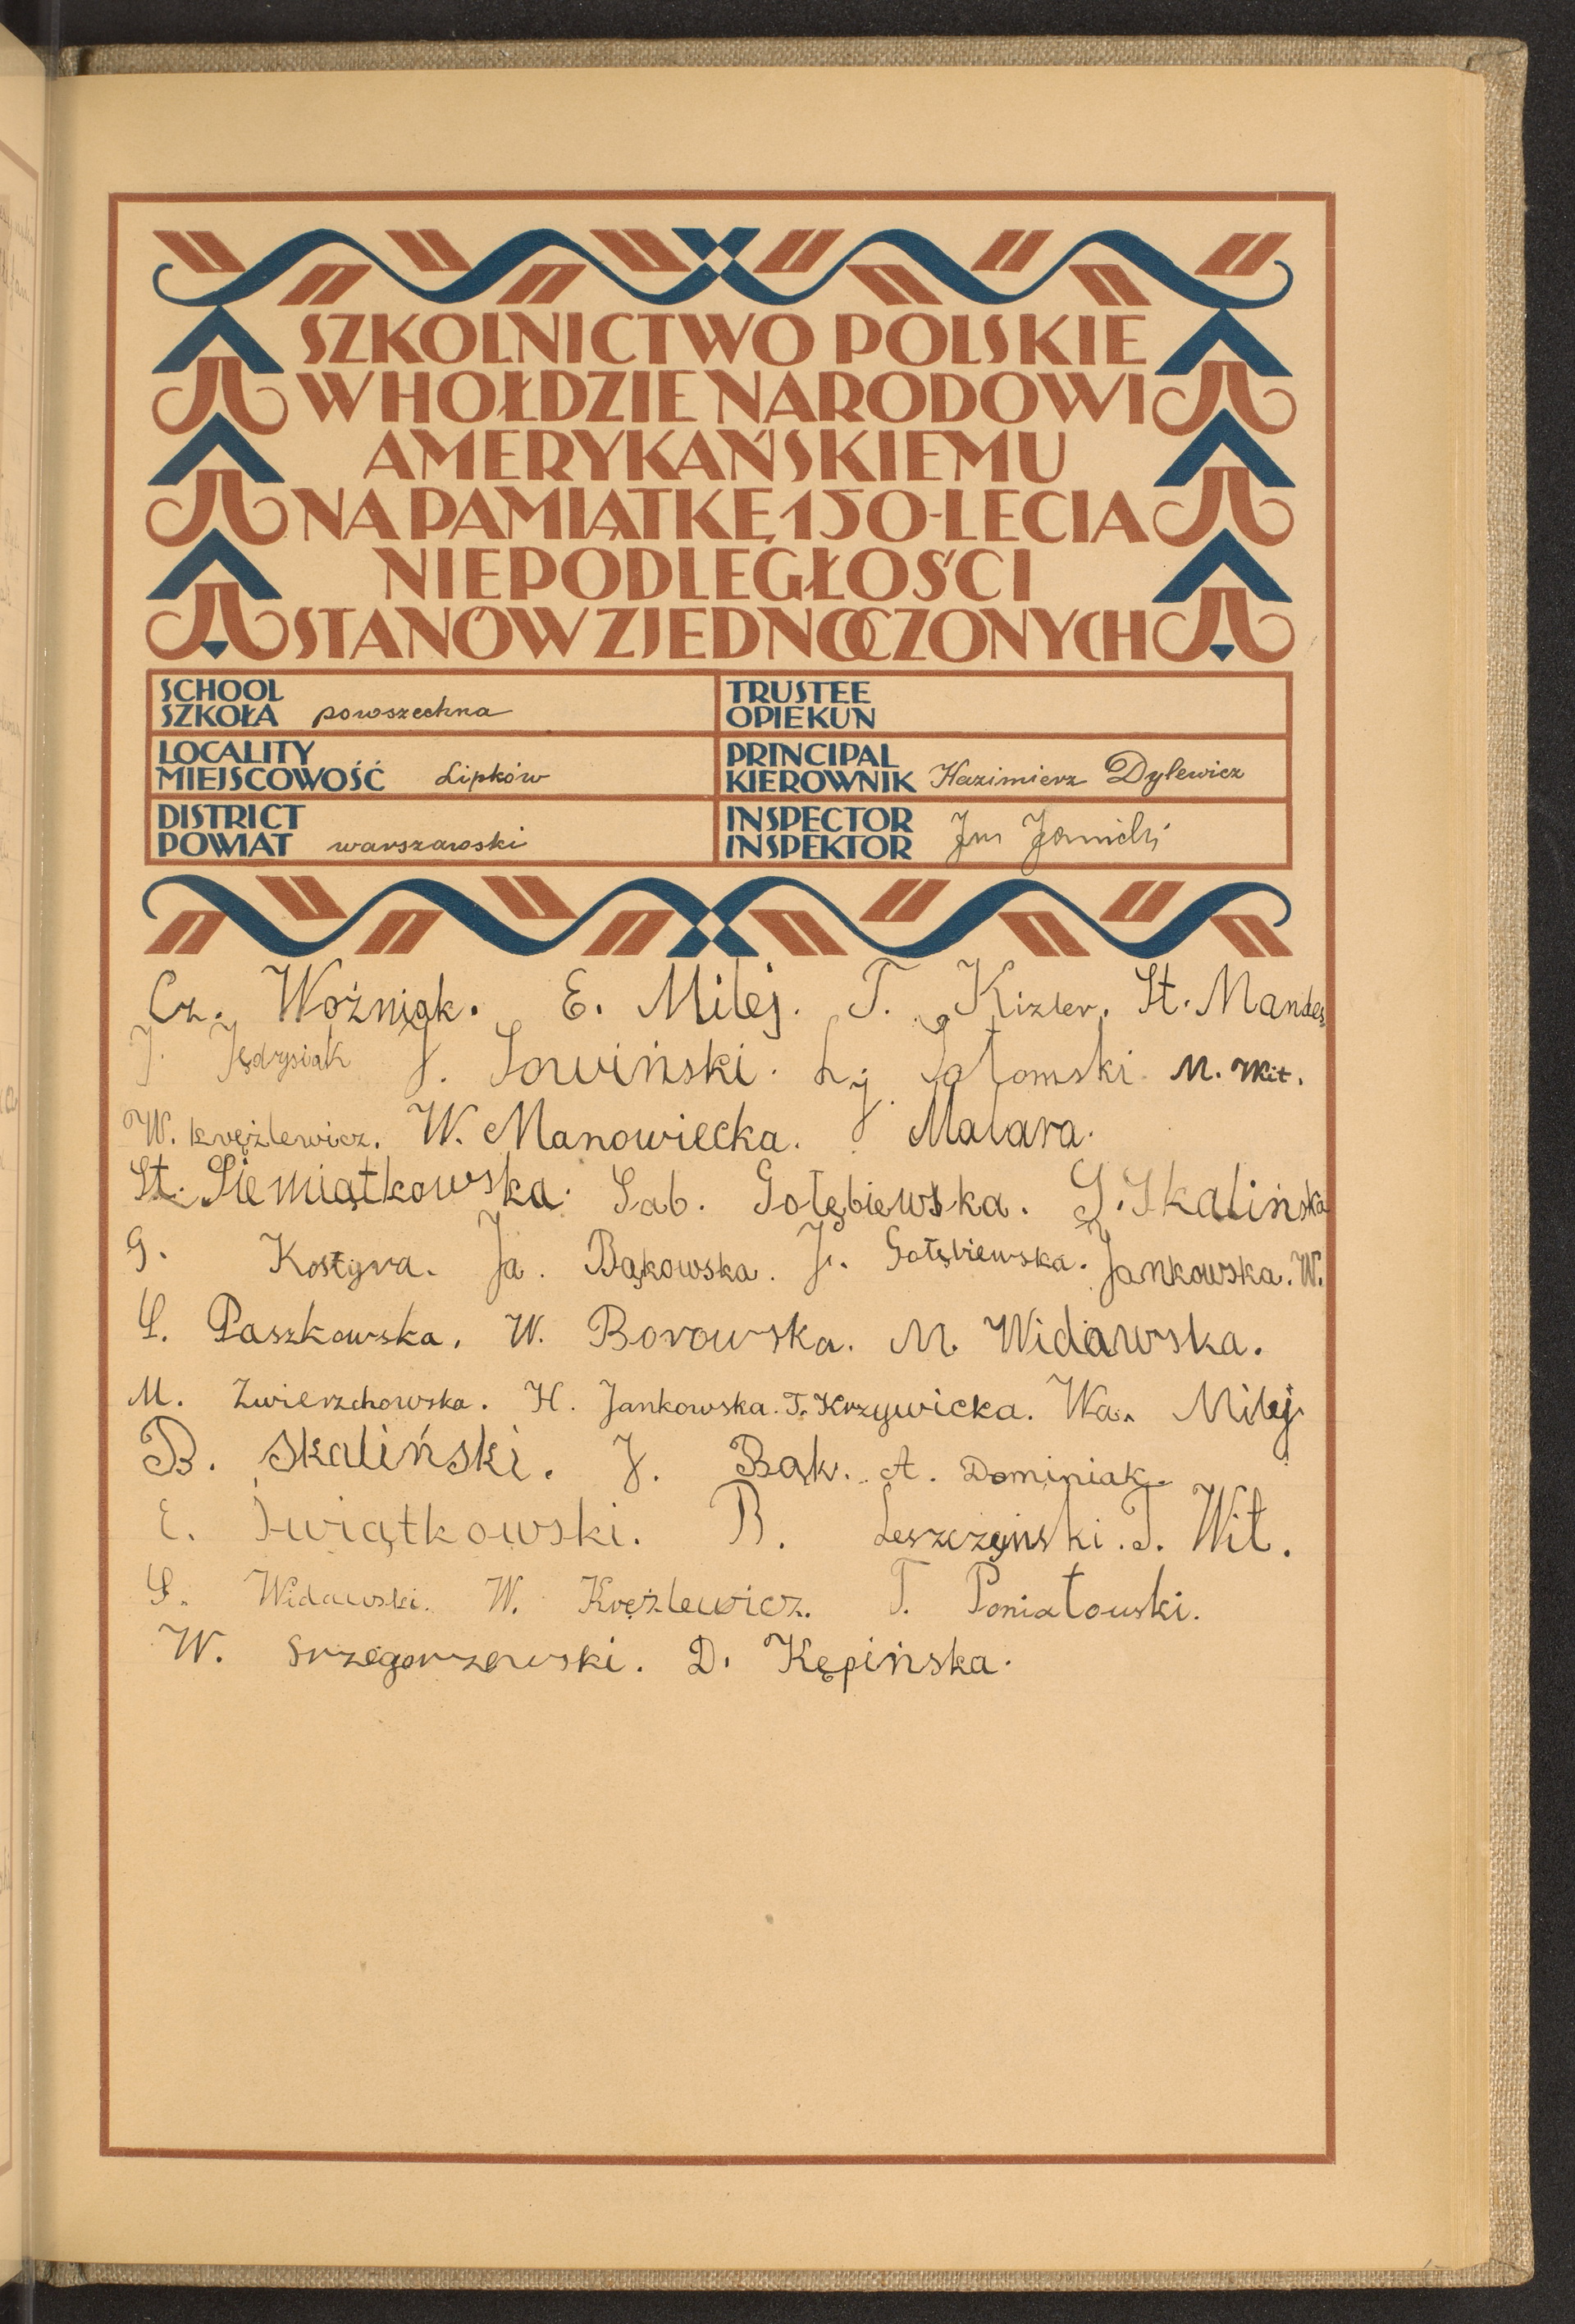 SZKOLNICTWO POLSKIE
W HOŁDZIE NARODOWI
AMERYKAŃSKIEMU
NA PAMIĄTKĘ 150-LECIA
NIEPODLEGŁOŚCI
STANÓW ZJEDNOCZONYCH
SCHOOL
SZKOŁA powszechna
TRUSTEE
OPIEKUN
LOCALITY
MIEJSCOWOŚĆ Lipków
PRINCIPAL
KIEROWNIK Kazimierz Dylewicz
DISTRICT
POWIAT warszawski
INSPECTOR
INSPEKTOR
Cz. Woźniak. E. Milej. T. Kizler. St. Mandes
J. Jędrysiak J. Sowiński. M. Wit.
W. Krężlewicz. W. Manowiecka. J. Malara.
St. Siemiątkowska. Sab. Gołębiewska. S. Skalińska
G. Kostyra. Ja. Bąkowska. J. Gołębiewska. Jankowska. W.
S. Paszkowska. W. Borowska. M. Widawska.
M. Zwierzchowska. H. Jankowska. T. Krzywicka. Wa. Milej
B. Skaliński. J. Bąk. A. Dominiak.
E. Świątkowski. B. Leszczyński. T. Wit.
S. Widawski. W. Krężlewicz. T. Poniatowski.
W. Grzegorzewski. D. Kępińska.